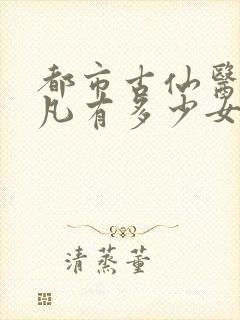 都市古仙醫
凡有多少女
清蒸董